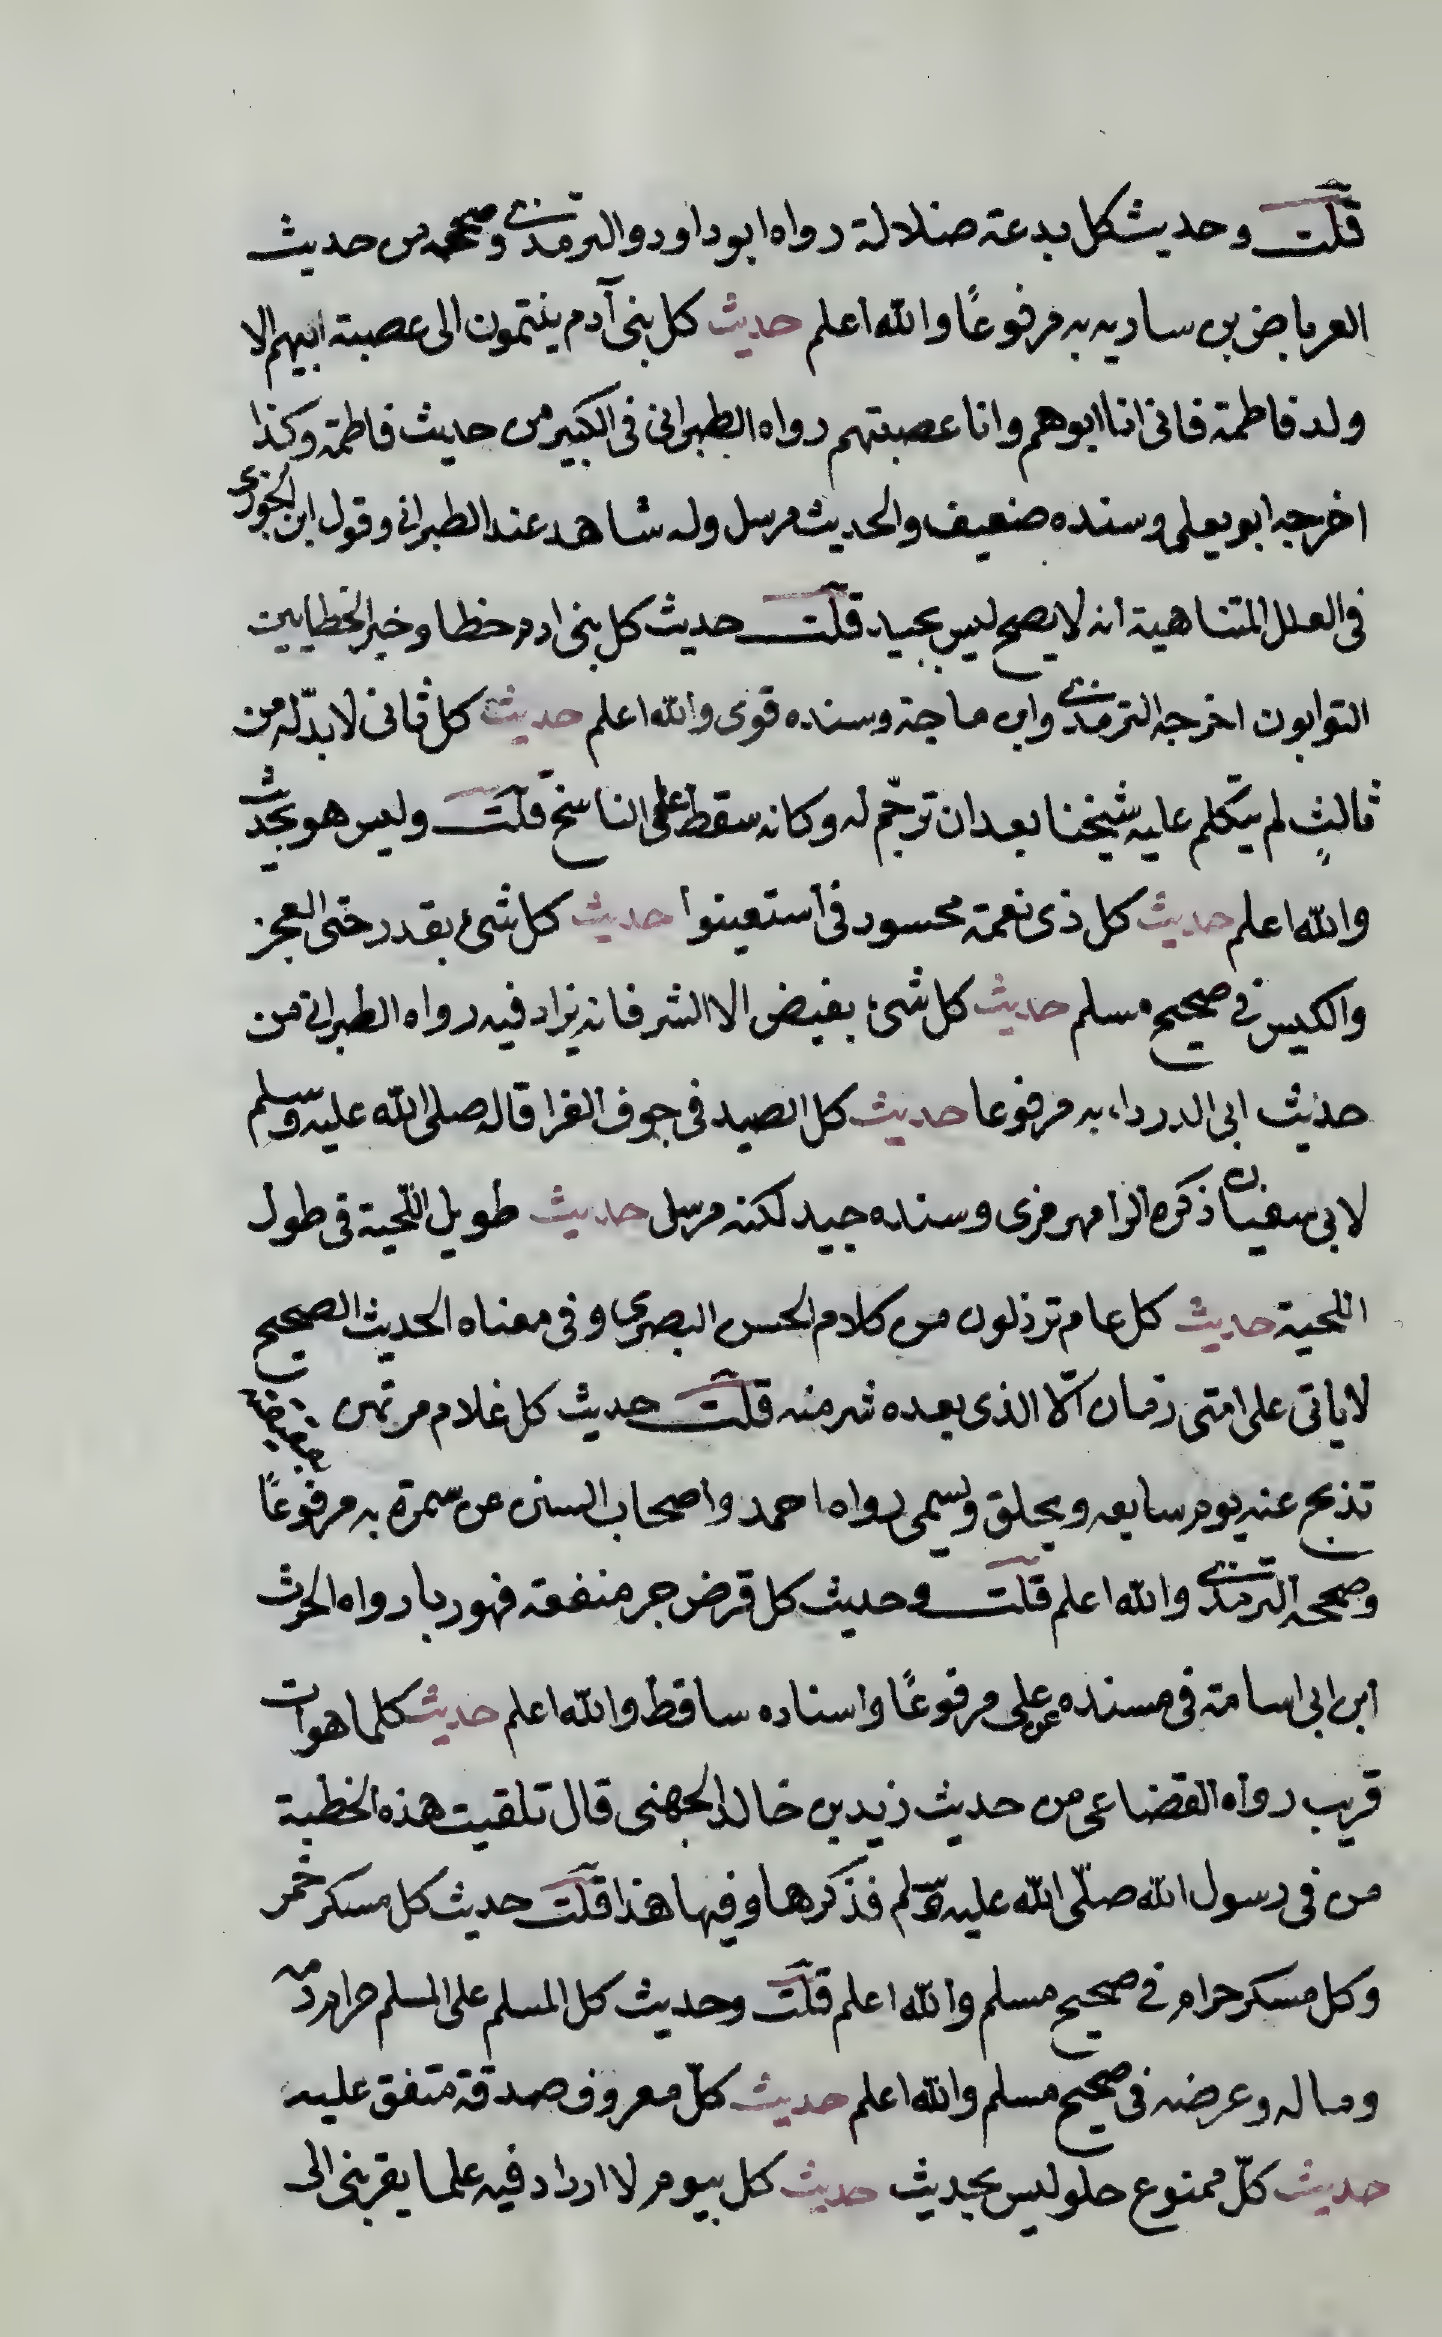 قلت وحديث كل بدعة ضلالة رواه ابو داود والترمذي وصححه من حديث
العرباض بن ساريه به مرفوعًا والله اعلم حديث كل بنى آدم ينتمون الى عصبتة ابيهم الا
ولد فاطمة فانى انا ابوهم وانا عصبتهم رواه الطبرانى فى الكبير من حديث فاطمة وكذا
اخرجه ابو يعلى وسنده ضعيف والحديث مرسل وله شاهد عند الطبرانى وقول ابن الجوزى
فى العلل المتناهية انه لا يصح ليس بجيد قلت حديث كل بنى ادم خطا وخير الخطايين
التوابون اخرجه الترمذي وابن ماجة وسنده قوى والله اعلم حديث كل ثانى لا بدّ له من
ثالثٍ لم يتكلم عليه شيخنا بعد ان ترجّم له وكانه سقط على الناسخ قلت وليس هو بحديث
والله اعلم حديث كل ذى نعمة محسود فى استعينوا حديث كل شئ بقدر حتى العجز
والكيس في صحيح مسلم حديث كل شئ بغيض الا الشر فانه يزاد فيه رواه الطبرانى من
حديث ابى الدرداء به مرفوعا حديث كل الصيد فى جوف الفرا قاله صلى الله عليه وسلم
لابى سفيان ذكره الرامهرمزى وسنده جيد لكنه مرسل حديث طويل اللّحية فى طول
اللحية حديث كل عام ترذلون من كلام الحسن البصرى وفى معناه الحديث الصحيح
لا ياتى على امتى زمان الّا الذى بعده شر منه قلت حديث كل غلام مرتهن بعقيقته
تذبح عنه يوم سابعه ويحلق ويسمى رواه احمد واصحاب السنن عن سمرة به مرفوعًا
وصححه الترمذي والله اعلم قلت وحديث كل قرض جر منفعة فهو ربا رواه الحرث
ابن ابى اسامة فى مسنده عن على مرفوعًا واسناده ساقط والله اعلم حديث كلما هو آت
قريب رواه القضاعى من حديث زيد بن خالد الجهنى قال تلقيت هذه الخطبة
من فى رسول الله صلّى الله عليه وسّلم فذكرها وفيها هذا قلت حديث كل مسكر خمر
وكل مسكر حرام في صحيح مسلم والله اعلم قلت وحديث كل المسلم على المسلم حرام دمه
وماله وعرضه فى صحيح مسلم والله اعلم حديث كلّ معروف صدقة متفق عليه
حديث كلّ ممنوع حلو ليس بحديث حديث كل بيوم لا ازداد فيه علما يقربنى الى